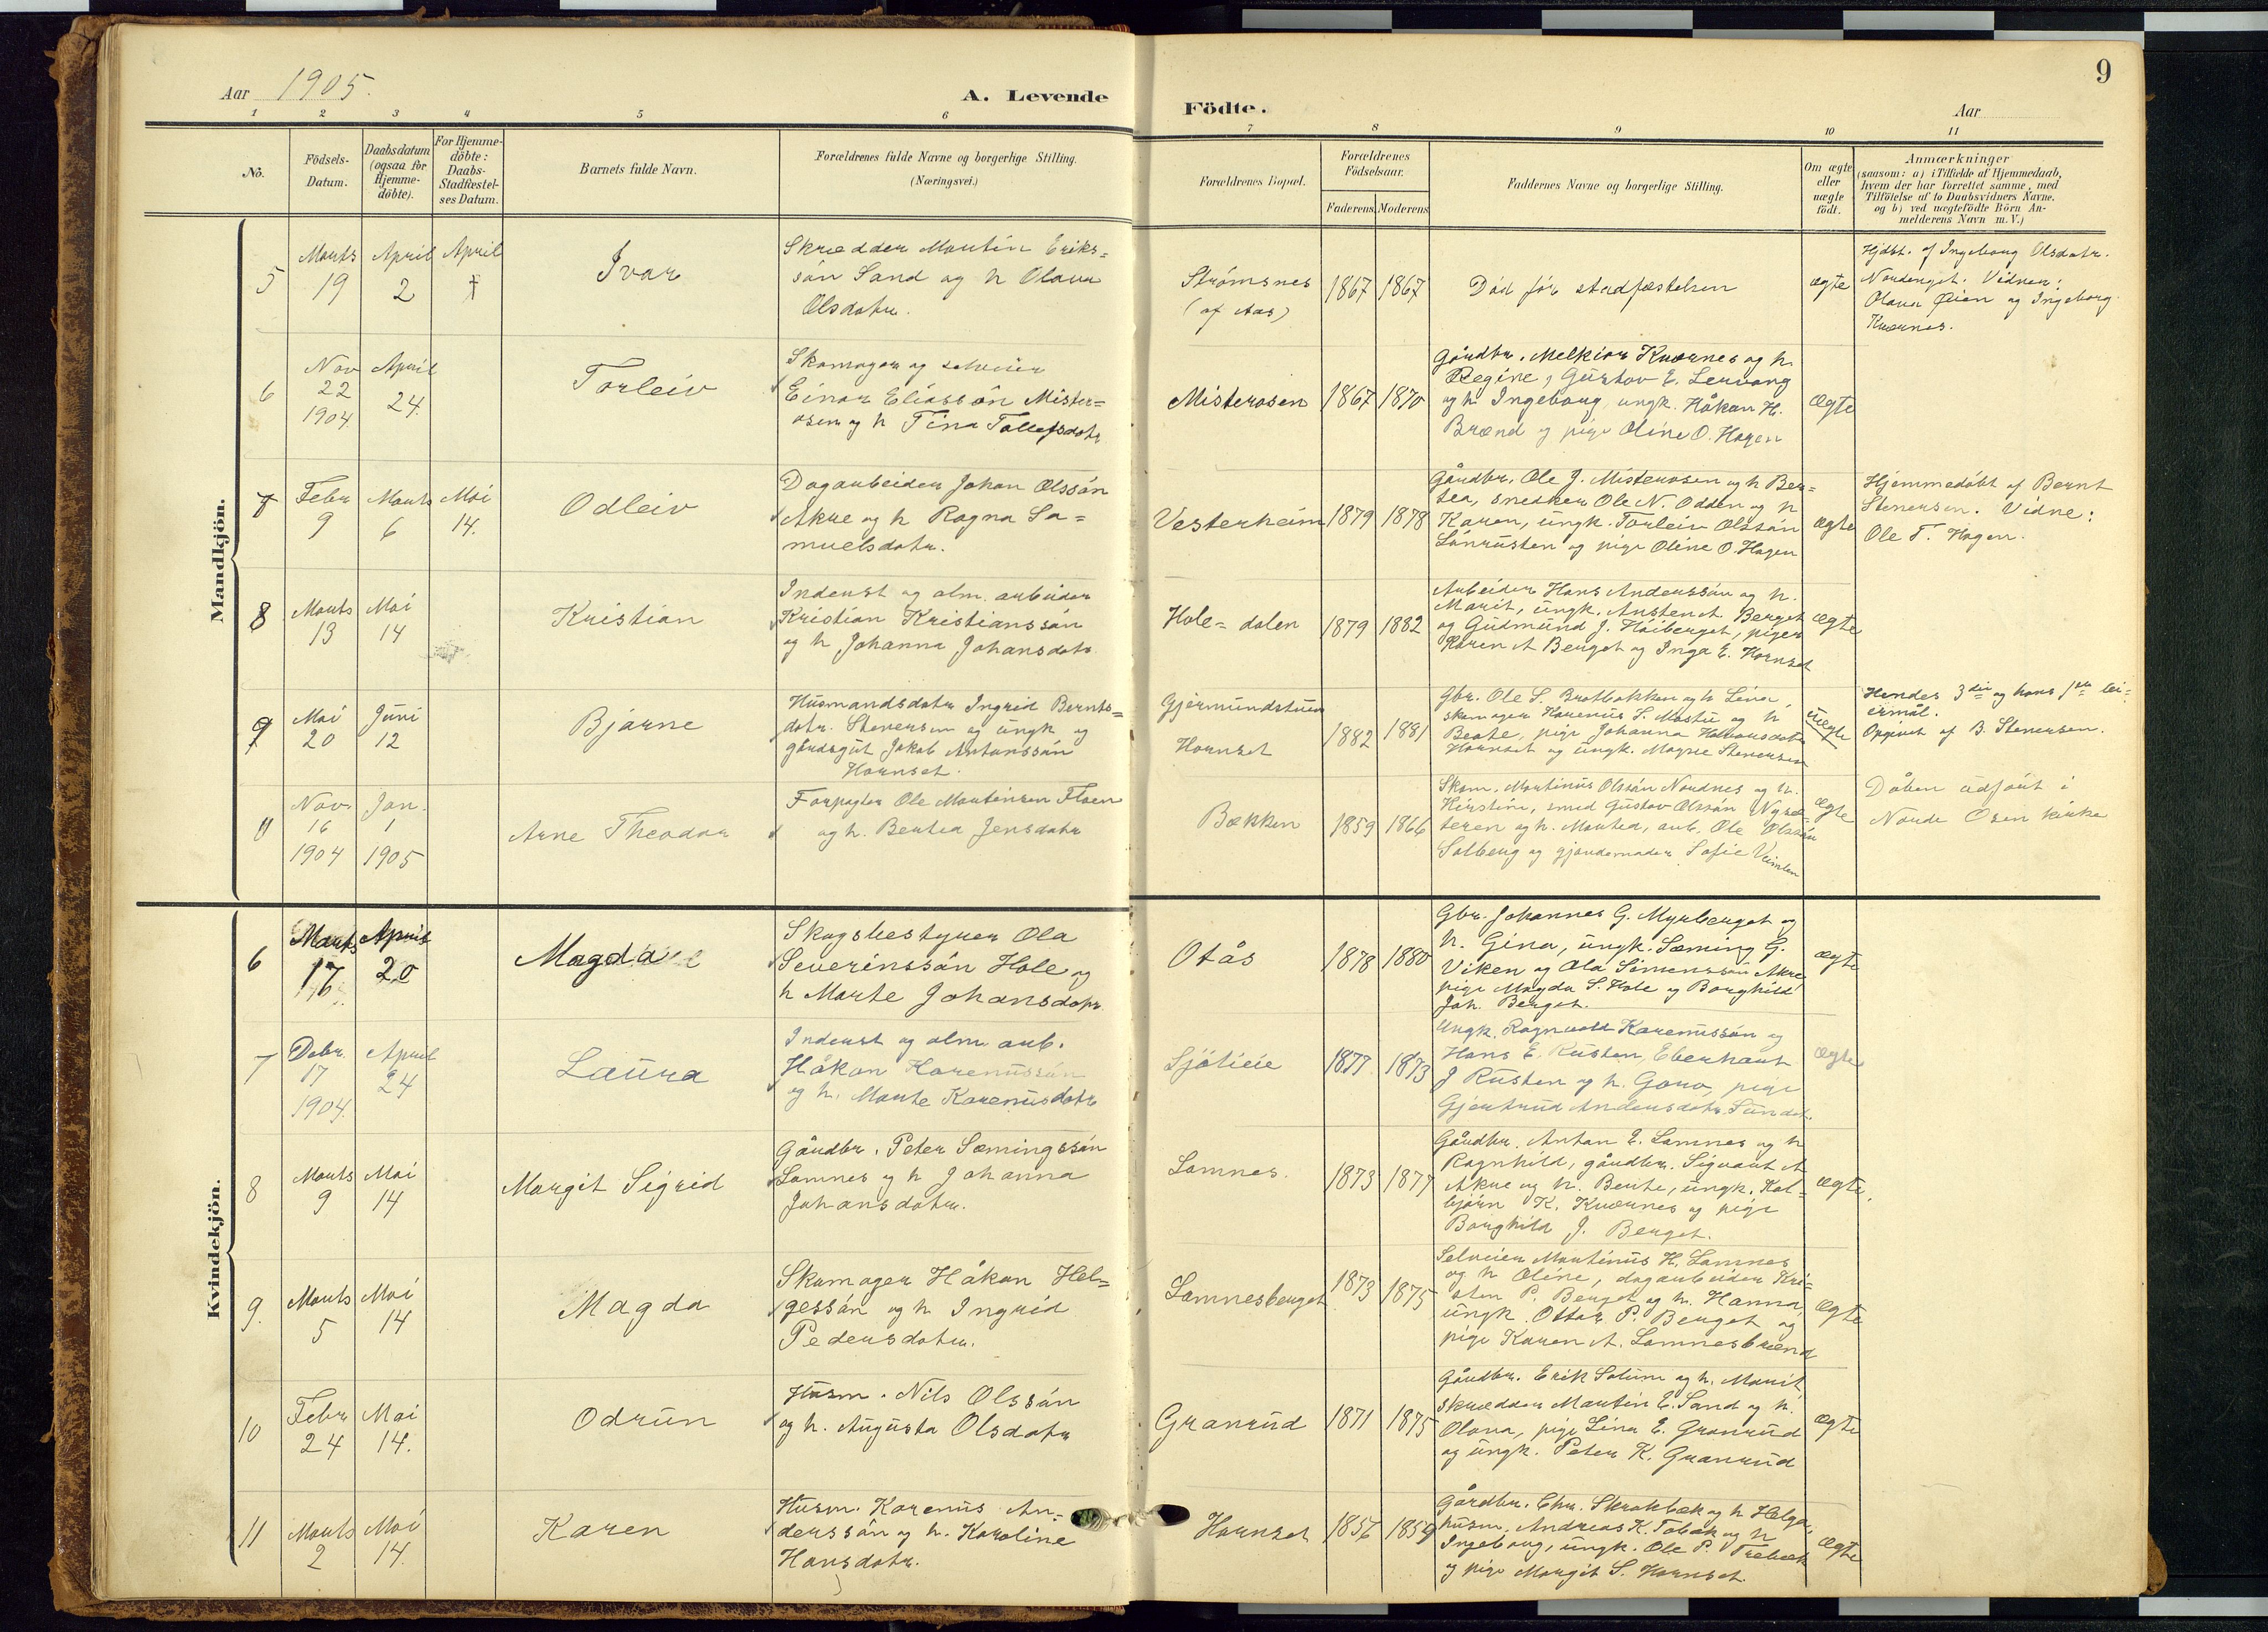 Aar 1905.
A. Levende
Födte.
Aar
9
1 2 3 4 5 6 7 8 9 10 11
No.
Födsels-
Datum.
Daabsdatum
(ogsaa for
Hjemme-
döbte).
For Hjemme-
döbte:
Daabs-
Stadfæstel-
ses Datum.
Barnets fulde Navn.
Forældrenes fulde Navne og borgerlige Stilling.
(Næringsvei.)
Forældrenes Bopæl.
Forældrenes
Födselsaar.
Faderens. Moderens.
Faddernes Navne og borgerlige Stilling.
Om ægte
eller
uægte
födt.
Anmærkninger
(saasom: a) i Tilfælde af Hjemmedaab,
hvem der har forrettet samme, med
Tilföielse af to Daabsvidners Navne,
og b) ved uægtefödte Börn An-
melderens Navn m. V.)
Mandkjön.
5
Marts
19
April
2
April
†
Ivar
Skrædder Martin Eriks=
sön Sand og h Olava
Olsdatr.
Strömsnes
(af Aas)
1867 1867
Död för stadfæstelsen
ægte
Hjdbt. af Ingeborg Olsdatr.
Nordenget. Vidner:
Olava Øien og Ingeborg
Kværnes.
6
Nov
22
1904
April
24.
Torleiv
Skomager og selveier
Einar Eliassön Mister=
osen og h Tina Tollefsdatr
Misterosen
1867 1870
Gårdbr. Melkior Kværnes og h.
Regine, Gustav E. Lervang
og h. Ingeborg, ungk. Håkon H.
Brænd og pige Oline O. Hagen
Ægte
7
Febr
9
Marts
6
Mai
14.
Odleiv
Dagarbeider Johan Olssön
Akre og h Ragna Sa=
muelsdatr.
Vesterheim
1879 1878
Gårdbr. Ole J. Misterosen og h Ber=
tea, snedker Ole N. Odden og h
Karen, ungk. Torleiv Olssön
Lönrusten og pige Oline O. Hagen
Ægte
Hjemmedöbt af Bernt
Stenersen. Vidne:
Ole T. Hagen.
8
Marts
13
Mai
14
Kristian
Inderst og alm. arbeider
Kristian Kristianssön
og h Johanna Johansdatr
Hole=dalen
1879 1882
Arbeider Hans Anderssön og h.
Marit, ungk. Austen A. Berget
og Gudmund J. Höiberget, piger
Karen A Berget og Inga E. Hornset
Ægte
9
Mai
20
Juni
12
Bjarne
Husmandsdatr Ingrid Bernts=
datr. Stenersen og ungk og
gårdsgut Jakob Antonssön
Hornset.
Gjermundstuen
Hornset
1882 1881
Gbr. Ole S. Bratbakken og h Lina,
skomager Karenus S. Mostu og h
Beate, pige Johanna Halvorsdatr
Hornset og ungk. Magne Stenersen
Uægte
Hendes 3die og hans 1ste lei=
ermål.
Opgivet af B. Stenersen.
11
Nov.
16
1904
Jan.
1
1905
Arne Theodor
Forpagter Ole Martinsen Floen
og h. Bertea Jensdatr
Bækken
1859 1866
Skom. Martinus Olssön Nordnes og h.
Kirstine, smed Gustav Olssön Nysæ=
teren og h. Marthea, arb. Ole Olssön
Solberg og gjordemoder Sofie
Ægte
Dåben udfört i
Nordre Osen kirke
Kvindekjön.
6
Marts
17.
April
20
Magda
Skogsbestyrer Ola
Severinssön Hole og
h Marte Johansdatr
Otås
1878 1880
Gbr. Johannes G. Myrberget og
h. Gina, ungk. Sæming G.
Viken og Ola Simenssön Akre,
pige Magda S. Hole og Borghild
Joh. Berget.
ægte
7
Debr.
17
1904.
April
24
Laura
Inderst og alm. arb.
Håkon Karenussön
og h. Marte Karenusdatr
Sjölieie
1877 1873
Ungk. Ragnvald Karenussön og
Hans E. Rusten, Eberhart
J Rusten og h. Goro, pige
Gjertrud Andersdatr. Sundet.
ægte
8
Marts
9
Mai
14
Margit Sigrid
Gårdbr. Peter Sæmingssön
Lomnes og h Johanna
Johansdatr.
Lomnes.
1873 1877
Gårdbr. Anton E. Lomnes og h
Ragnhild, gårdbr. Sigvart A
Akre og h. Berte, ungk. Kol=
björn K. Kværnes og pige
Borghild J. Berget.
ægte.
9.
Marts
5
Mai
14
Magda
Skomager Håkon Hel=
gessön og h Ingrid
Pedersdatr.
Lomnesberget
1873 1875
Selveier Martinus H. Lomnes
og h Oline, dagarbeider Kri=
sten P. Berget og h. Hanna,
ungk. Ottar P. Berget og
pige Karen A. Lomnesbrænd
Ægte
10
Febr
24
Mai
14.
Odrun
Husm. Nils Olssön
og h. Augusta Olsdatr
Granrud
1871 1875
Gårdbr. Erik Solum og h. Marit
skrædder Martin E. Sand og h.
Olava, pige Lina E. Granrud
og ungk. Peter K. Granrud
ægte
11
Marts
2
Mai
14.
Karen
Husm. Karenus An=
derssön og h. Karoline
Hansdatr.
Hornset
1856 1859
Gårdbr. Chr. Skrakbæk og h Helga,
husm. Andreas K. Tebæk og h
Ingeborg, ungk. Ole P. Trebæk
og pige Margit S. Hornset.
Ægte